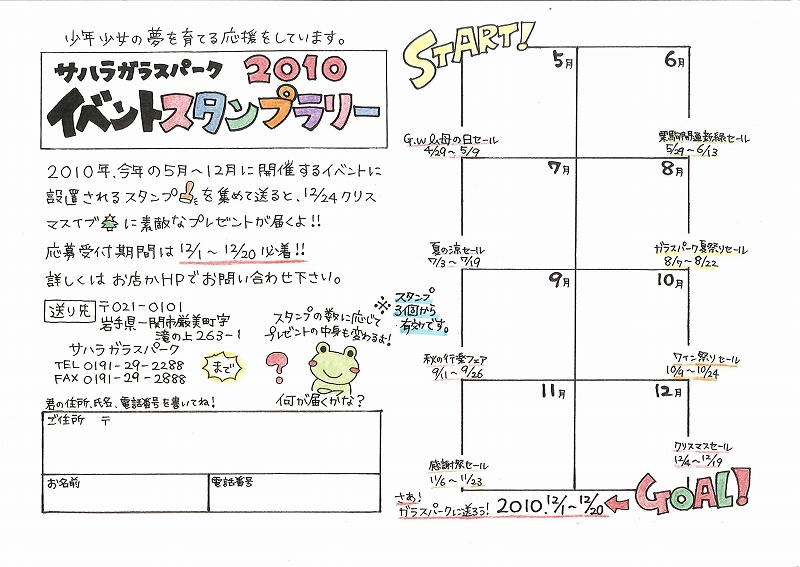 少年少女の夢を育てる応援をしています。
サハラガラスパーク 2010
イベントスタンプラリー
2010年、今年の5月〜12月に開催するイベントに
設置されるスタンプを集めて送ると、12/24クリス
マスイブに素敵なプレゼントが届くよ!!
応募受付期間は 12/1〜12/20 必着!!
詳しくは お店かHPでお問い合わせ下さい。
送り先 〒021-0101
岩手県一関市厳美町字
滝の上263-1
サハラガラスパーク
TEL 0191-29-2288
FAX 0191-29-2888
まで
スタンプの数に応じて
プレゼントの中身も変わるよ!
?
何が届くかな?
※スタンプ
3個から
有効です。
君の住所、氏名、電話番号を書いてね!
ご住所 〒
お名前
電話番号
START!
5月
G.W&母の日セール
4/29〜5/9
6月
栗駒開道新緑セール
5/29〜6/13
7月
夏の涼セール
7/3〜7/19
8月
ガラスパーク夏祭りセール
8/7〜8/22
9月
秋の行楽フェア
9/11〜9/26
10月
ワイン祭りセール
10/9〜10/24
11月
感謝祭セール
11/6〜11/23
12月
クリスマスセール
12/4〜12/19
さあ!
ガラスパークに送ろう! 2010.12/1〜12/20
GOAL!